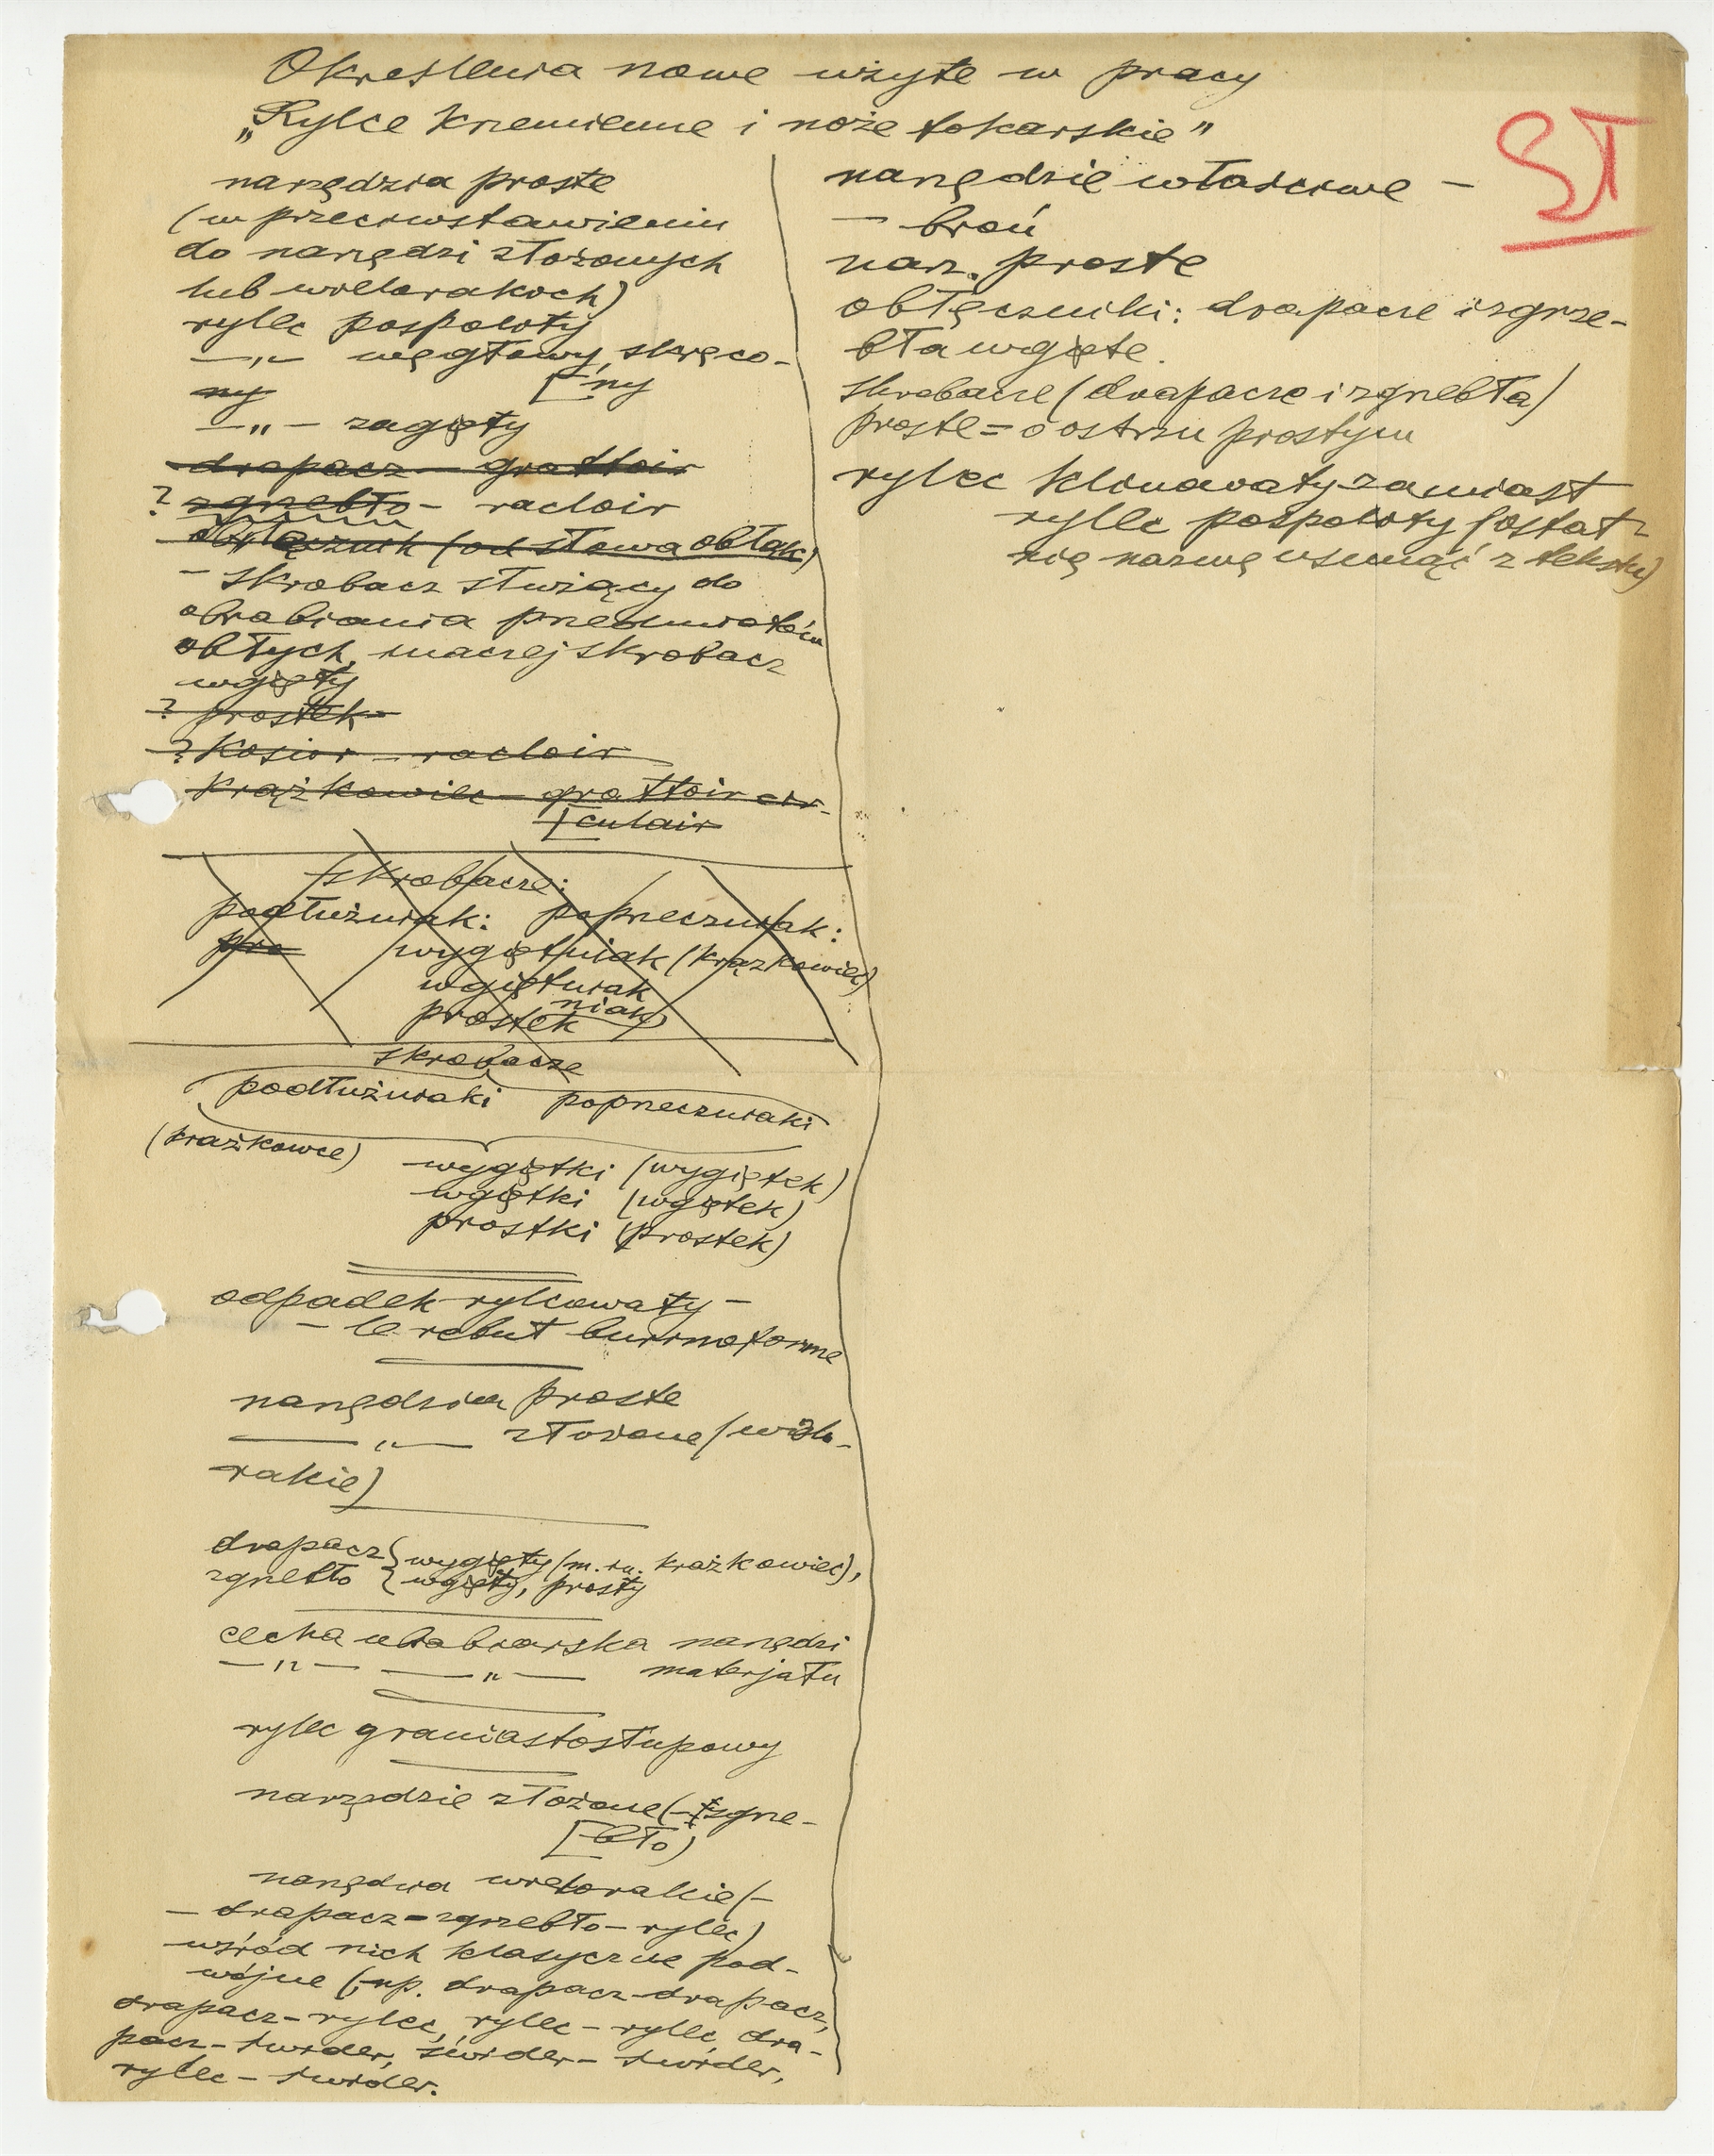 Określenia nowe użyte w pracy
„Rylce krzemienne i noże tokarskie"
ST
narzędzia proste
(w przeciwstawieniu
do narzędzi złożonych
lub wielorakich)
rylec pospolity
—„— węgłowy, skręco-
ny [-ny
—„— zagięty
drapacz — grattoir
? zgrzebło - racloir
obłącznik (od słowa obłąk)
- skrobacz służący do
obrabiania przedmiotów
obłych, inaczej skrobacz
wgięty
? prostek -
? Kosior - racloir
krążkowiec - grattoir cir-
[culair
skrobacze:
podłużniak: poprzeczniak:
pro wygiętniak (krążkowiec)
wgiętniak
prostek niak)
skrobacze
podłużniaki poprzeczniaki
(krążkowce) wygiętki (wygiętek)
wgiętki (wgiętek)
prostki (prostek)
odpadek rylcowaty -
- le rebut burinoforme
narzędzia proste
—„— złożone (wielo-
rakie)
drapacz } wygięty (m. in. krążkowiec),
zgrzebło } wgięty, prosty
cecha obrabiarska narzędzi
—„— —„— materjału
rylec graniastosłupowy
narzędzie złożone (- zgrze-
[-bło)
narzędzia wielorakie (-
- drapacz - zgrzebło - rylec)
wśród nich klasyczne pod-
wójne (np. drapacz-drapacz,
drapacz - rylec, rylec - rylec, dra-
pacz - świder, świder - świder,
rylec - świder.
narzędzie właściwe -
- broń
narz. proste
obłęczniki: drapacze i zgrze-
bła wgięte.
skrobacze (drapacze i zgrzebła)
proste = o ostrzu prostym
rylec klinowaty zamiast
rylec pospolity (ostat-
nią nazwę usunąć z tekstu)